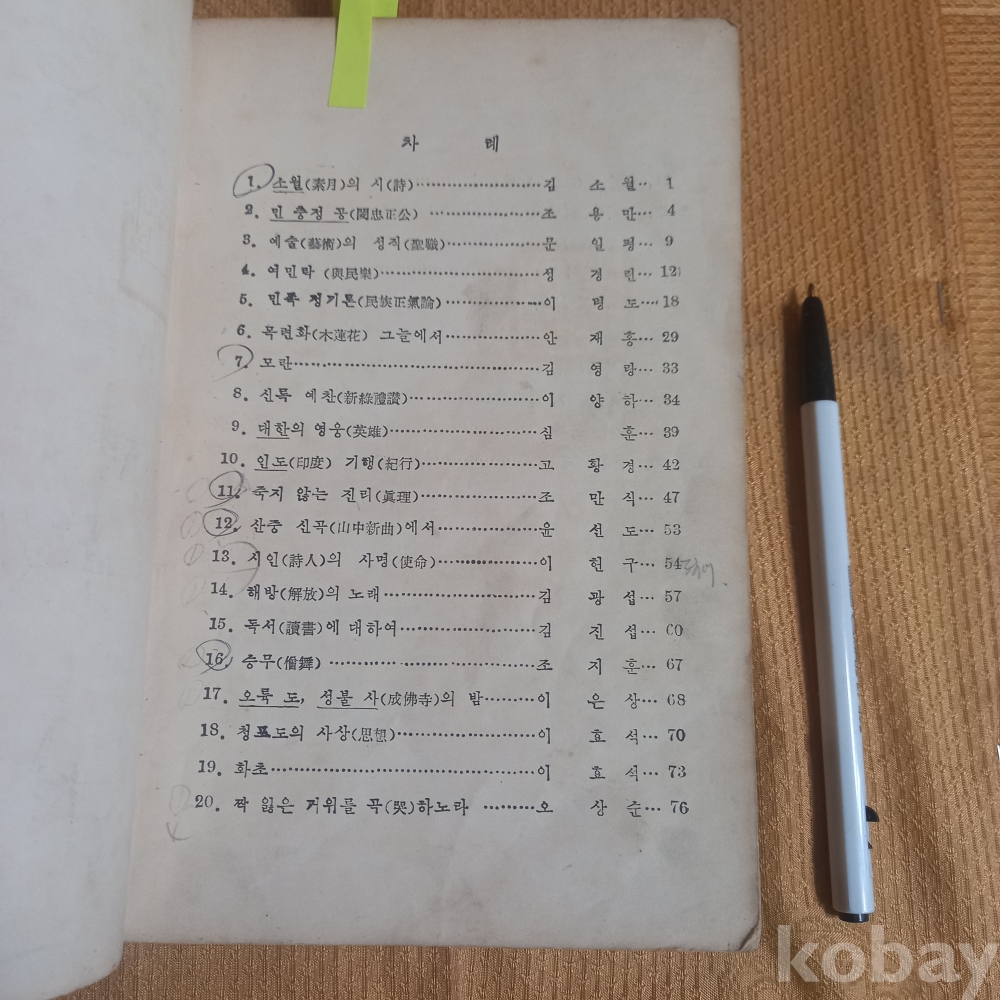 차 례
1. 소월(素月)의 시(詩)……………………김 소 월… 1
2. 민 충정 공(閔忠正公) ……………………조 용 만… 4
3. 예술(藝術)의 성직(聖職)………………문 일 평… 9
4. 여민락 (與民樂)…………………………성 경 린… 12
5. 민족 정기론(民族正氣論)………………이 명 도… 18
6. 목련화(木蓮花) 그늘에서………………안 재 홍… 29
7. 모란………………………………………김 영 랑… 33
8. 신록 예찬(新綠禮讃)……………………이 양 하… 34
9. 대한의 영웅(英雄)………………………심 훈… 39
10. 인도(印度) 기행(紀行)…………………고 황 경… 42
11. 죽지 않는 진리(眞理)…………………조 만 식… 47
12. 산중 신곡(山中新曲)에서………………윤 선 도… 53
13. 시인(詩人)의 사명(使命)………………이 헌 구… 54
14. 해방(解放)의 노래………………………김 광 섭… 57
15. 독서(讀書)에 대하여……………………김 진 섭… 60
16. 승무(僧舞) ………………………………조 지 훈… 67
17. 오륙 도, 성불 사(成佛寺)의 밤………이 은 상… 68
18. 청포도의 사상(思想)……………………이 효 석… 70
19. 화초………………………………………이 효 석… 73
20. 짝 잃은 거위를 곡(哭)하노라 ………오 상 순… 76
kobay